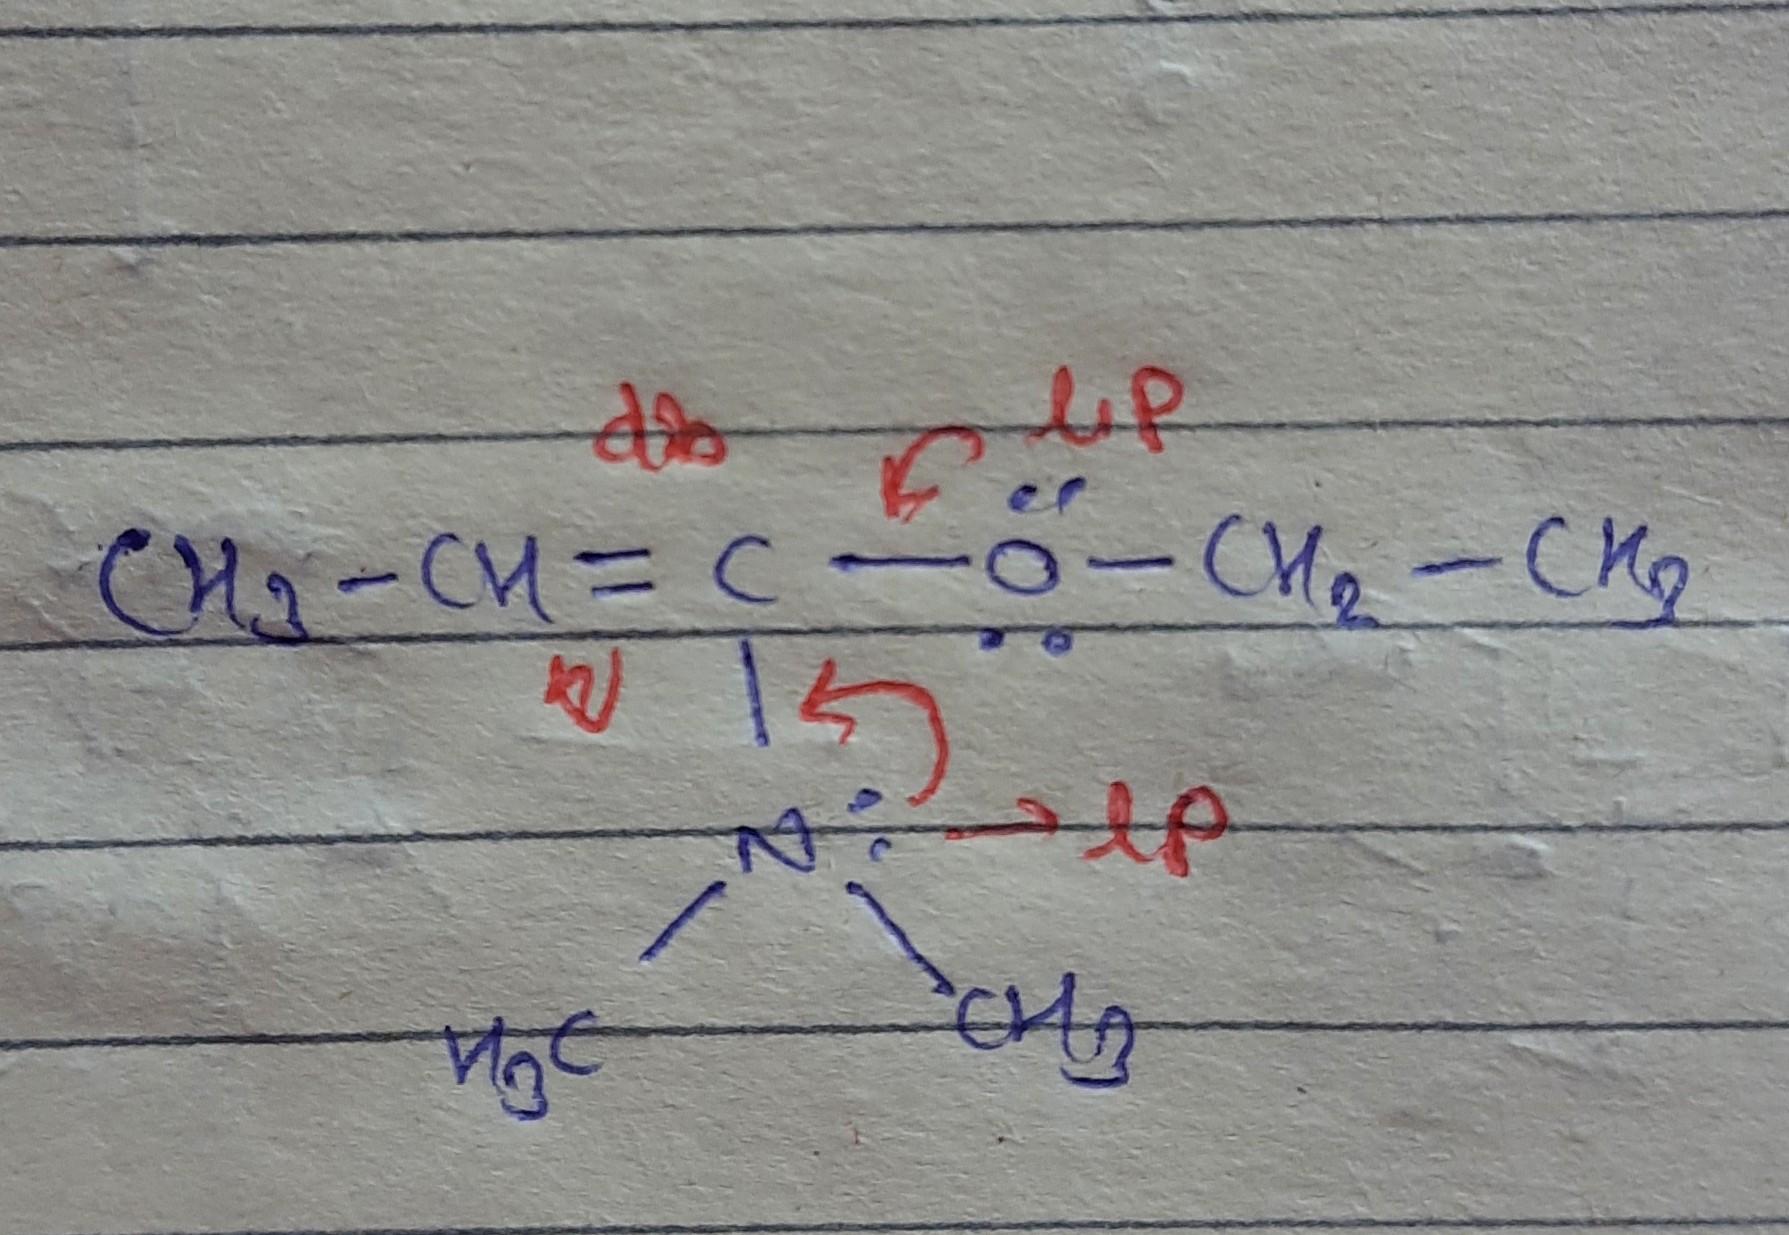 db lP
CH3-CH=C—Ö-CH2-CH3
N: → lP
H3C CH3